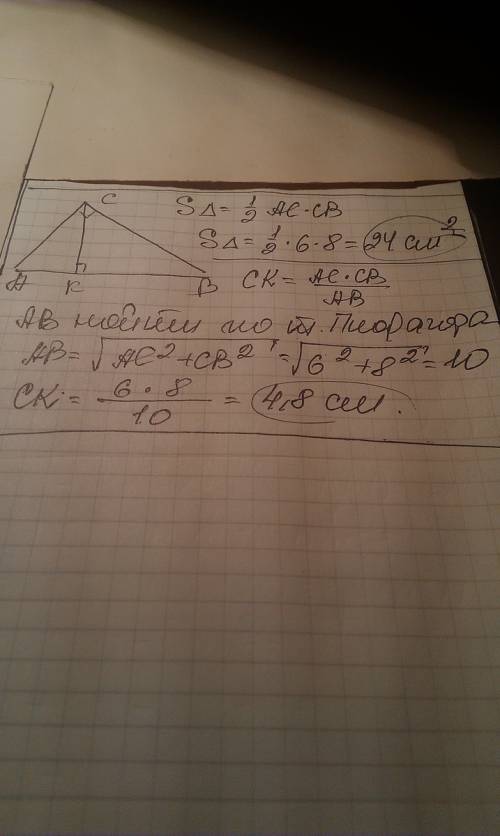 C
A
K
B
S△ = 1/2 AC·CB
S△ = 1/2 · 6 · 8 = 24 см²
CK = AC·CB / AB
AB найти по т. Пифагора
AB = √AC² + CB² = √6² + 8² = 10
CK = 6 · 8 / 10 = 4,8 см.